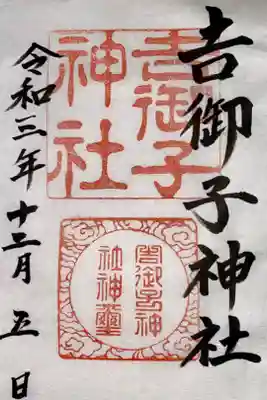 吉御子神社
吉御子
神社
吉御子神
社神璽
令和三年十二月五日